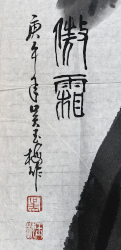 傲霜
庚午年吴玉梅作